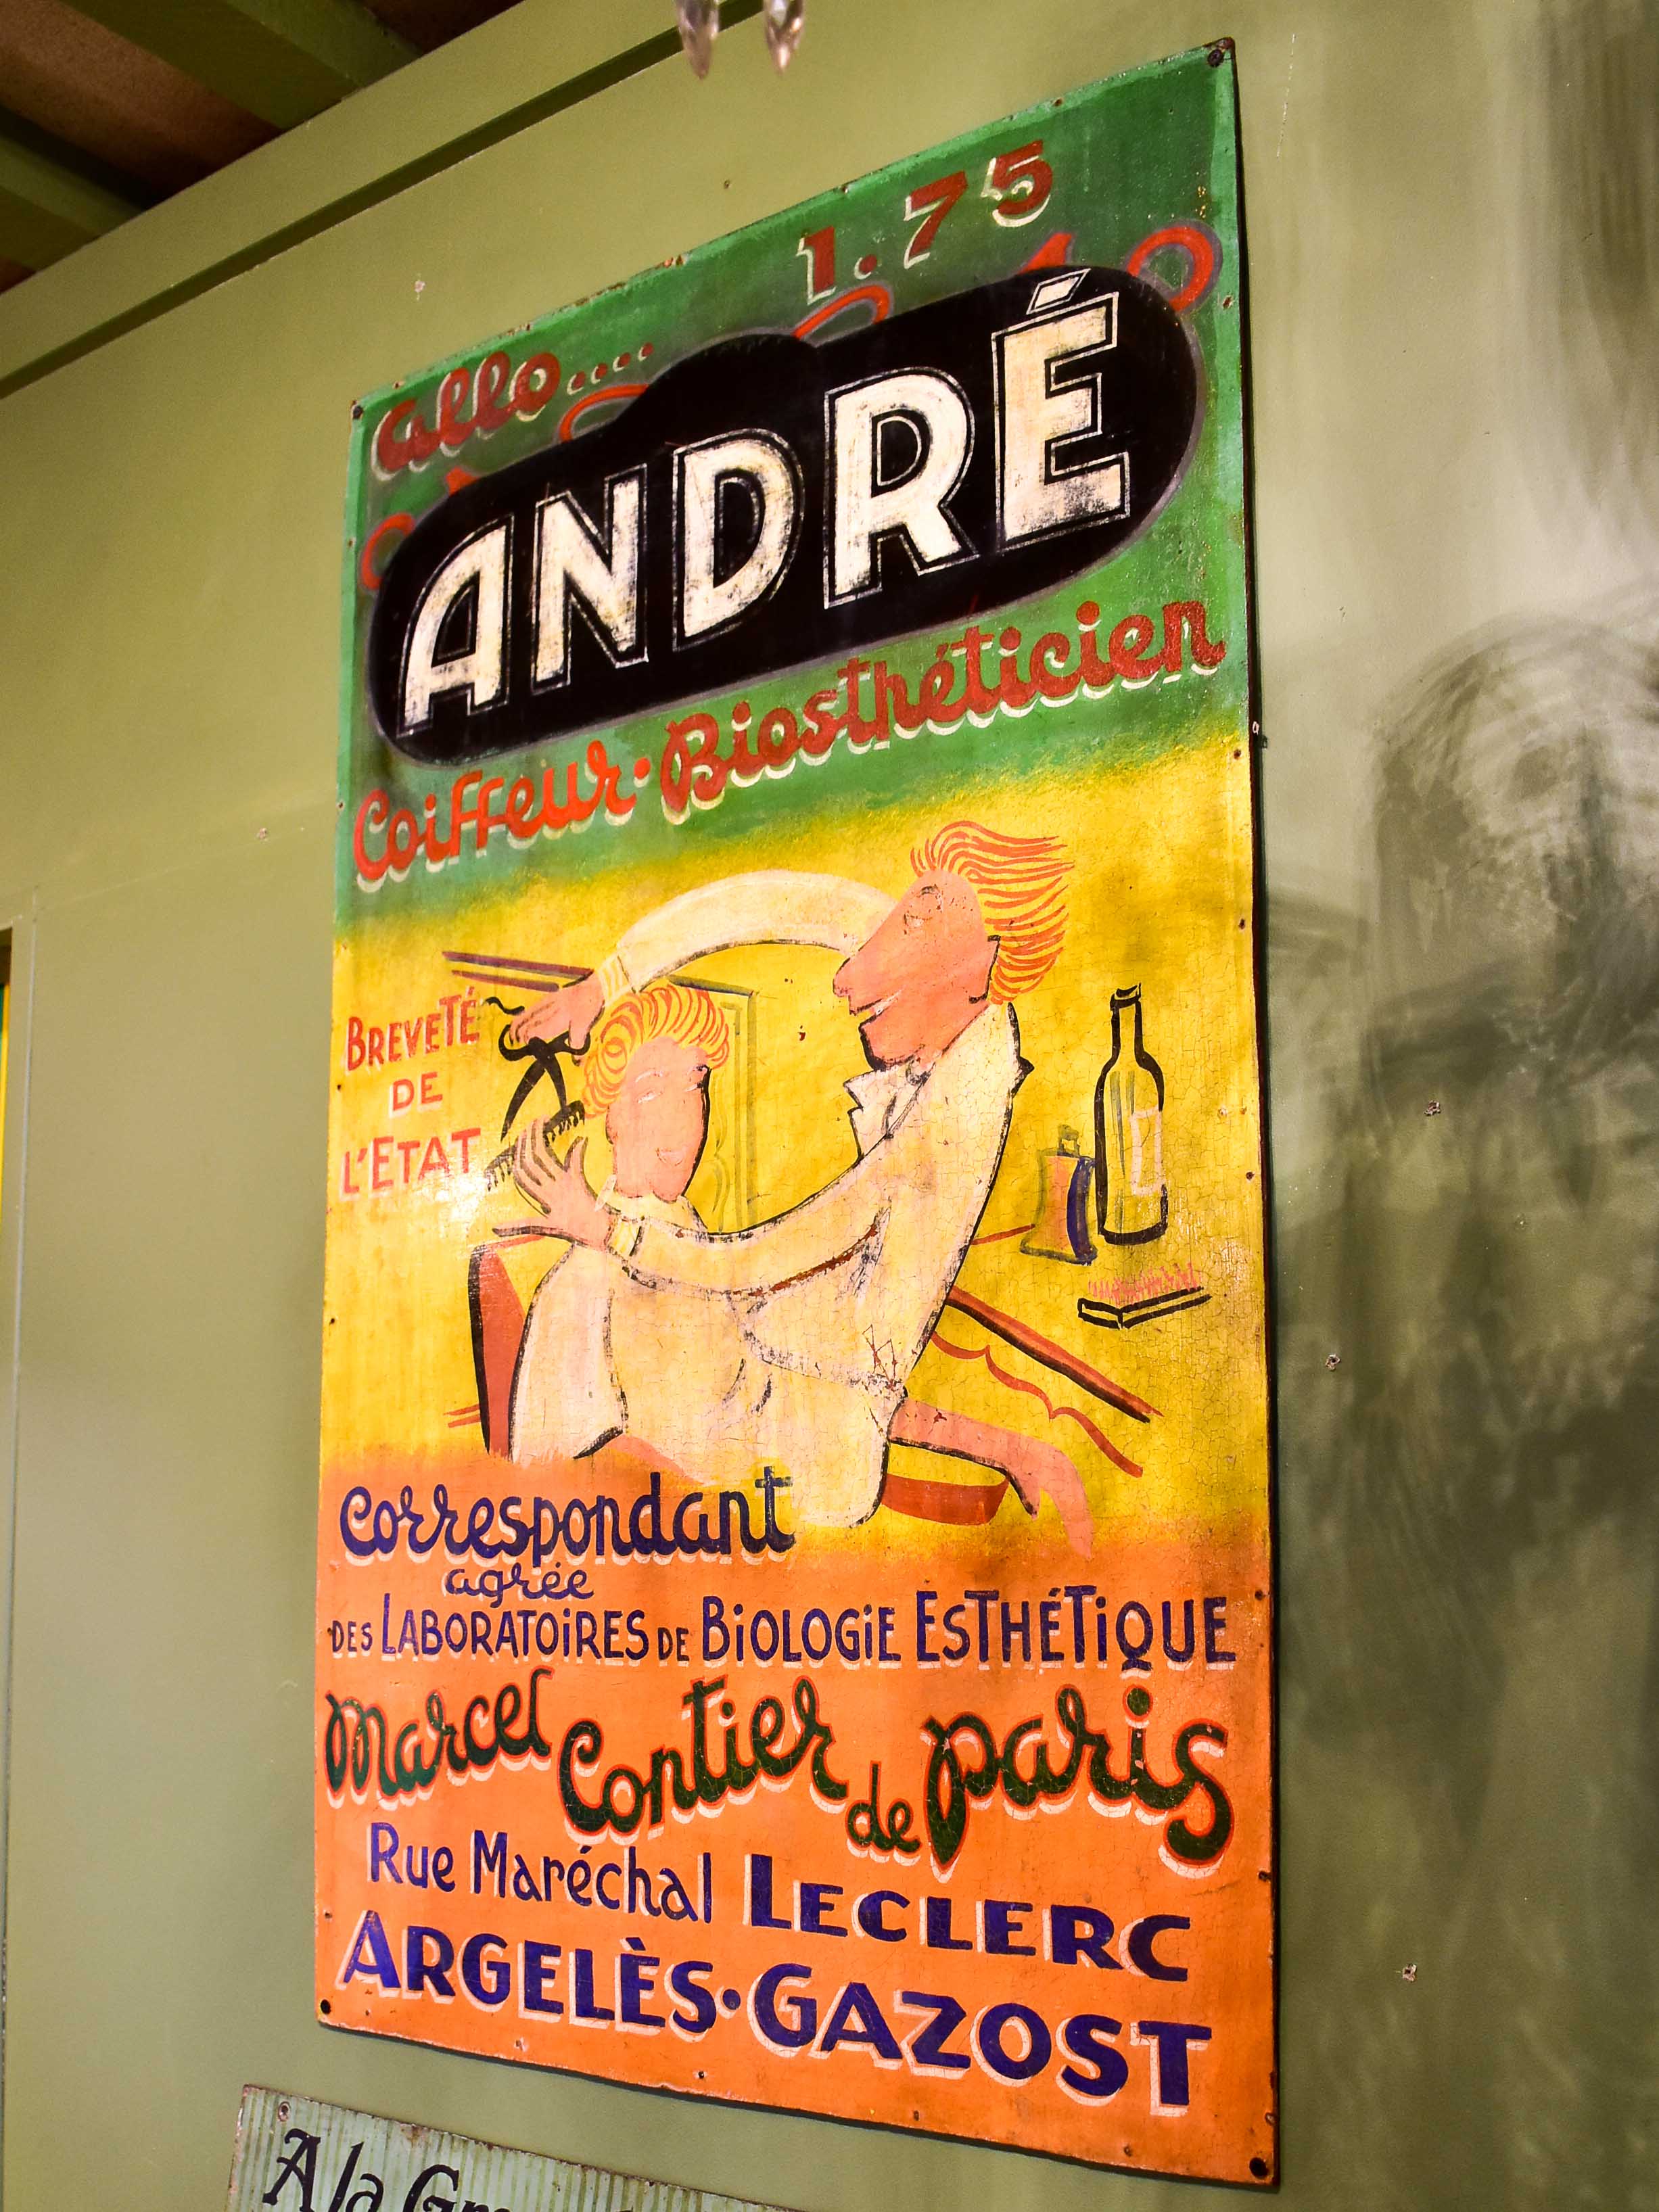 allo.... 1.75
ANDRÉ
Coiffeur·Biosthéticien
BREVETÉ
DE
L'ETAT
Correspondant
agrée
DES LABORATOIRES DE BIOLOGIE ESTHÉTIQUE
Marcel Contier de paris
Rue Maréchal LECLERC
ARGELÈS·GAZOST
A la